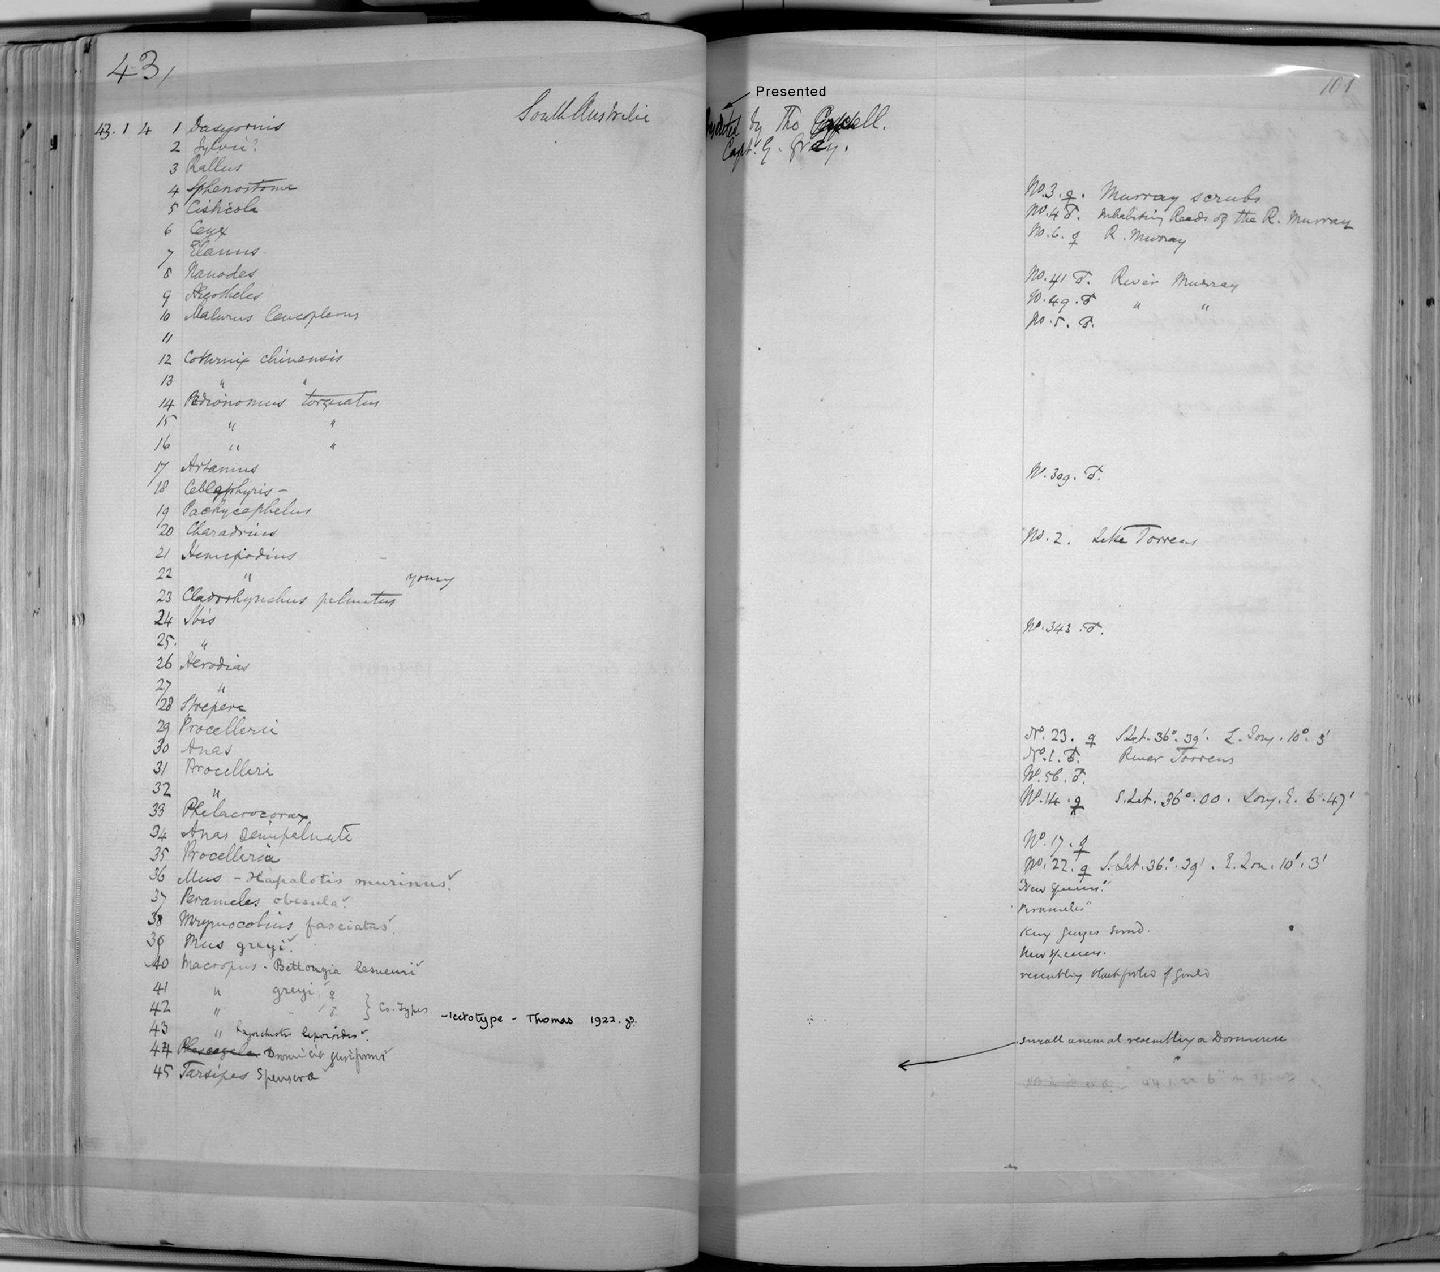 43,
101
Presented
South Australia
Presented by Tho
Capt. G. Grey.
43. 1 4 1 Dasyornis
2 Sylvia?
3 Rallus
4 Sphenostoma No. 3. ♀. Murray scrubs
5 Cisticola No. 4 ♂. Inhabiting Reeds of the R. Murray
6 Ceyx No. 6. ♀ R. Murray
7 Elanus
8 Nanodes No. 41 ♂. River Murray
9 Aegotheles No. 49. ♂ " "
10 Malurus leucopterus No. 5. ♂.
11
12 Coturnix chinensis
13 " "
14 Pedionomus torquatus
15 " "
16 " "
17 Artamus No. 309. ♂.
18
19 Pachycephalus
20 Charadrius No. 2. Lake Torrens
21 Hemipodius
22 " young
23 Cladorhynchus palmatus
24 Ibis No. 343. ♂.
25. "
26 Herodias
27 "
28 Strepera
29 Procellaria No. 23. ♀ S. Lat. 36°. 39'. E. Long. 10°. 3'
30 Anas No. 1. ♂. River Torrens
31 Procellari No. 56. ♂.
32 " No. 14. ♀ S. Lat. 36°. 00. Long. E. 6. 47'
33 Phalacrocorax
34 Anas semipalmata No. 17. ♀
35 Procellaria No. 22. ♀ S. Lat. 36°. 39'. E. Lon. 10°. 3'
36 Mus - Hapalotis murinus. New species.
37 Perameles obesula. Perameles
38 Myrmecobius fasciatus. King Georges Sound.
39 Mus greyi. New species.
40 Macropus. Bettongia lesueuri resembling of Gould
41 " greyi ♀
42 " " ♂ } Co-Types - lectotype - Thomas 1922.
43 " Lagorchestes leporoides.
44 Dromicia gliriformis small animal resembling a Dormouse
45 Tarsipes spenserae